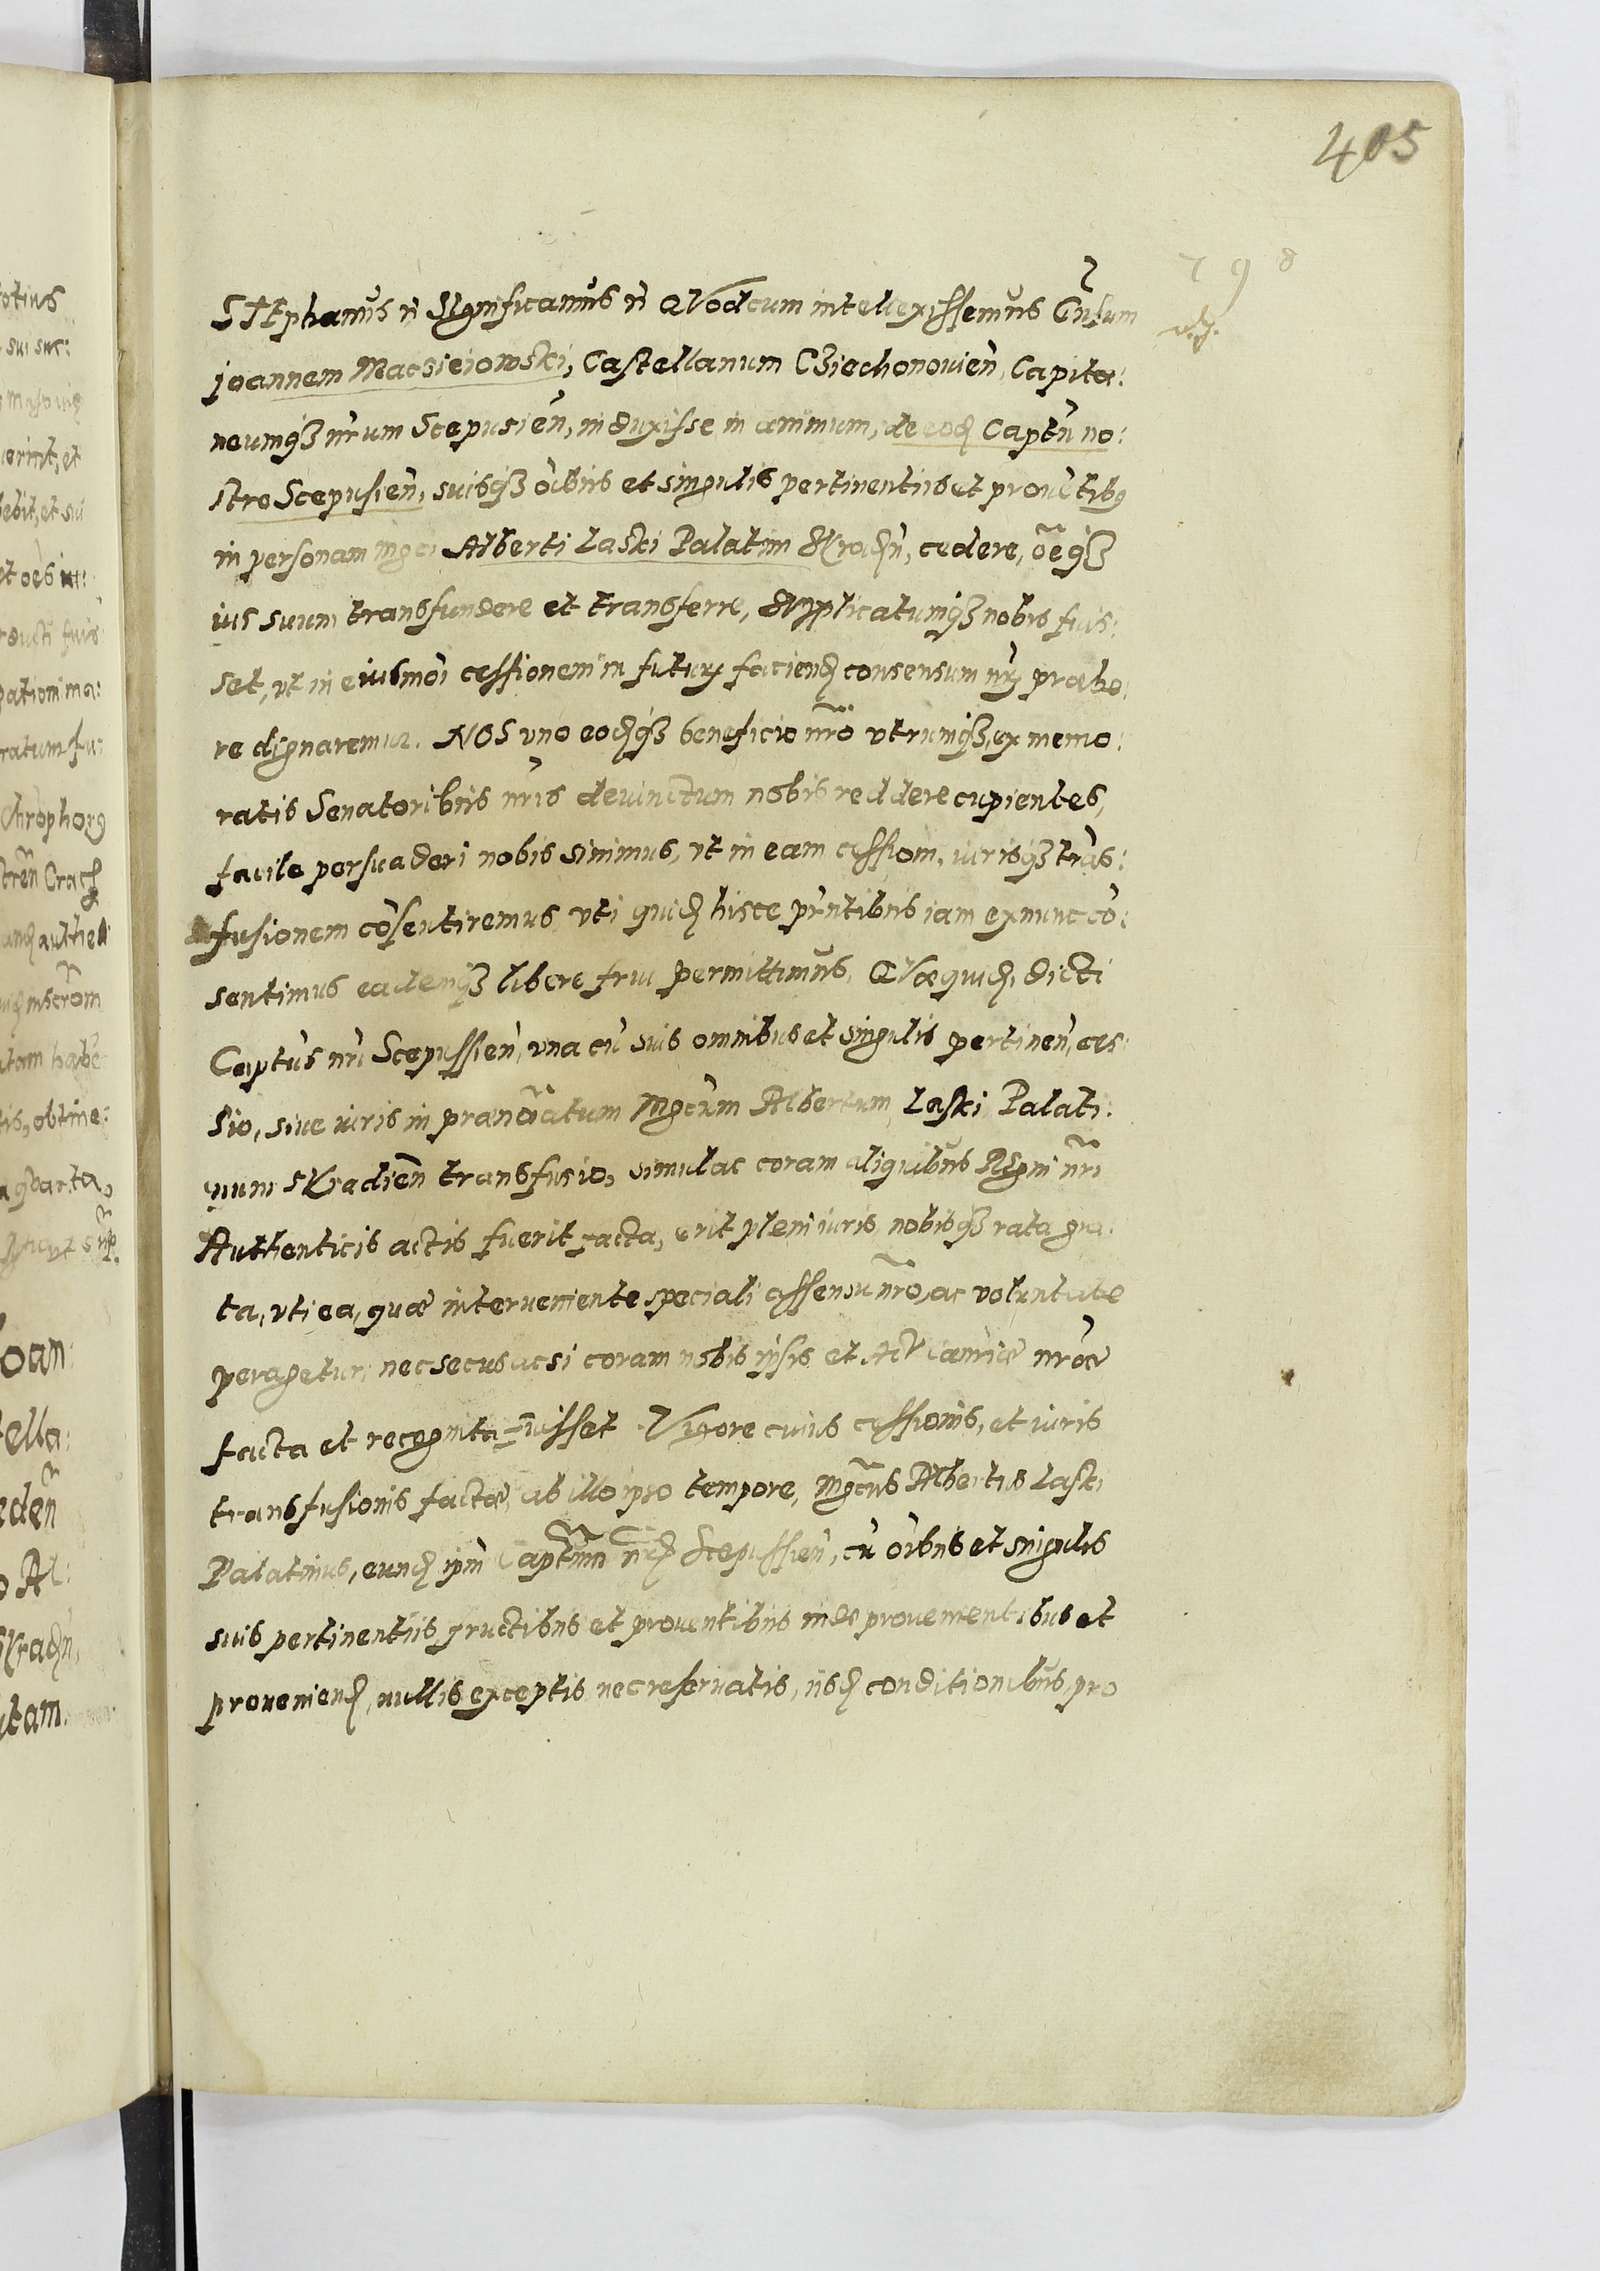 405
798
STEphanus ñ SIgnificamus ñ QVodcum intellexissemus Gnsum
Joannem Macsieiowski, Castellanum CZiechonouieñ, Capita:
neumqʒ nrum Scepusieñ, induxisse in animum, de eodᷤ Captũ no:
stro Scepusieñ, suisqʒ oĩbus et singulis pertinentiis et prouẽtibꝰ
in personam mgci Alberti Laski Palatini SYradñ, cedere, oẽqʒ
ius suum transfundere et transferre, SVpplicatumqʒ nobis fuis:
set, vt in eiusmoi cessionem in futurꝝ faciendᷤ consensum nrꝝ præbe:
re dignaremur. NOS vno eodᷤqʒ beneficio nro vtrumqʒ, ex memo:
ratis Senatoribus nris deuinctum nobis reddere cupientes,
facile persuaderi nobis sinimus, vt in eam cessioni, iurisqʒ trãs:
fusionem cõsentiremus vti quidᷤ hisce pñtibus iam exnunc cõ:
sentimus eademqʒ libere frui permittimus, QVæ quidᷤ dicti
Captus nri Scepussieñ, vna cũ suis omnibus et singulis pertineñ, ces:
sio, siue iuris in prænoiatum Mgcum Albertum Laski Palati:
num SYradieñ transfusio, simulac coram aliquibus REgni nri
Authenticis actis fuerit facta, erit pleni iuris, nobisqʒ rata gra:
ta, vti ea, quæ interueniente speciali assensu nro, ac voluntate
peragetur, nec secus ac si coram nobis ipsis et Actᷤ Canriæ nræ
facta et recognita fuisset. VIgore cuius cessionis, et iuris
transfusionis factæ, ab illo ipso tempore, Mgcus Albertus Laski
Palatinus, eundᷤ ipm Captum nrᷤ Scepussieñ, cũ oĩbus et singulis
suis pertinentiis fructibus et prouentibus inde prouenientibus et
proueniendᷤ, nullis exceptis nec reseruatis, iisdᷤ conditionibus, pro